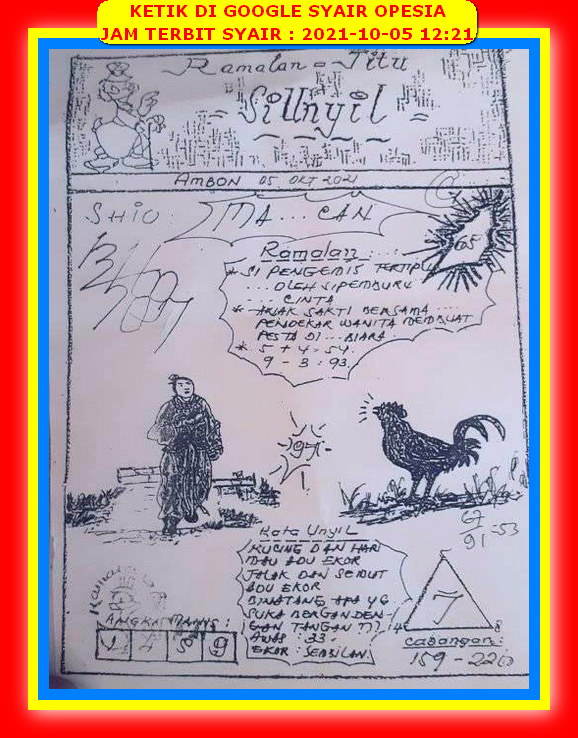 KETIK DI GOOGLE SYAIR OPESIA
JAM TERBIT SYAIR : 2021-10-05 12:21
Ramalan = Jitu
Si Unyil
AMBON 05 OKT 2021
SHIO :
MA... CAN
65
Ramalan . . . :
* SI PENGEMIS TERTIPU
... OLEH SIPEMBURU
... CINTA
* ANAK SAKTI BERSAMA ....
PENDEKAR WANITA MEMBUAT
PESTA DI ... BIARA.
* 5 + 4 = 54.
9 - 3 : 93.
67
91-53
Kata Unyil
KUCING DAN HARI
MAU ADU EKOR
JALAK DAN SEMUT
ADU EKOR
BINATANG APA YG
SUKA BERGANDEN-
GAN TANGAN
AWAS : 33
EKOR : SEMBILAN.
7
8
ANGKA MAINS :
4 5 9
Cadangan :
159 - 220